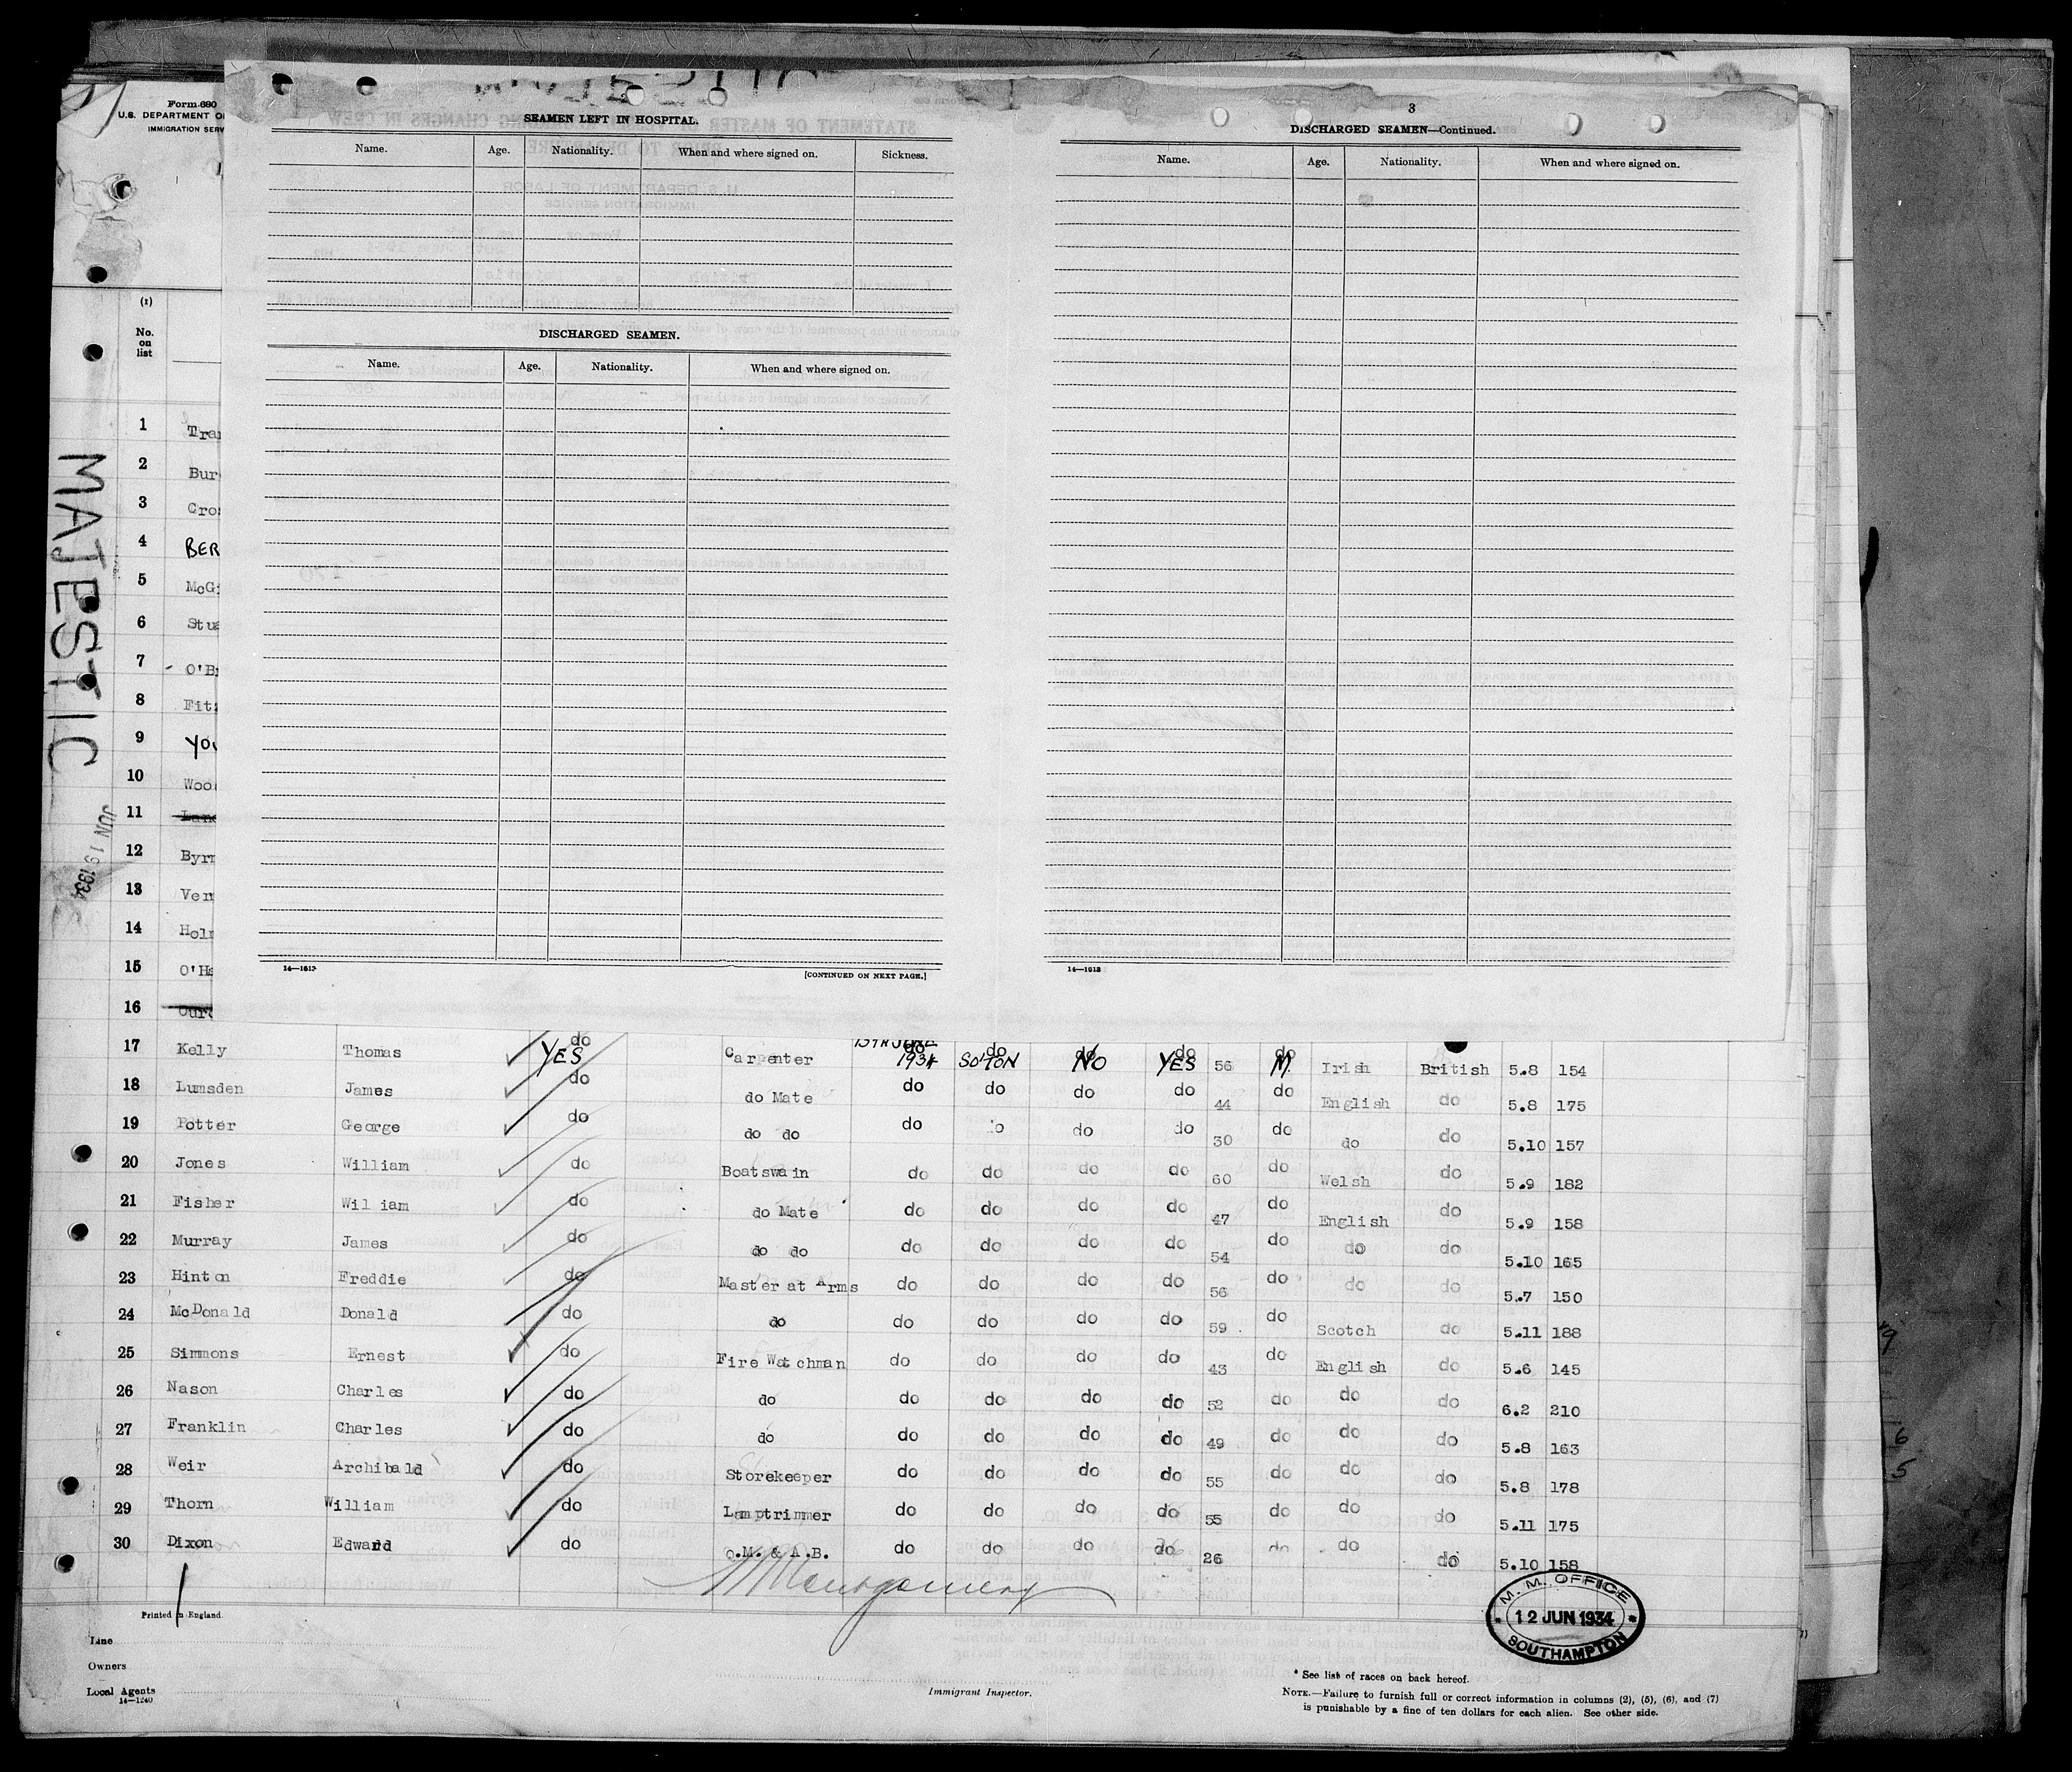 Form 680
U.S. DEPARTMENT O
IMMIGRATION SERV
(1)
No.
on
list
MAJESTIC
JUN 19 1934
1 Tra
2 Bur
3 Cro
4 BER
5 McG
6 Stu
7 O'B
8 Fit
9 YOU
10 Woo
11
12 Byr
13 Ver
14 Hol
15 O'H
16
SEAMEN LEFT IN HOSPITAL.
Name. Age. Nationality. When and where signed on. Sickness.
DISCHARGED SEAMEN.
Name. Age. Nationality. When and where signed on.
14—1613 [CONTINUED ON NEXT PAGE.]
3
DISCHARGED SEAMEN—Continued.
Name. Age. Nationality. When and where signed on.
14—1613
17 Kelly Thomas do YES Carpenter do 1934 do SO'TON do NO do YES 56 do M. Irish British 5.8 154
18 Lumsden James do do Mate do do do do 44 do English do 5.8 175
19 Potter George do do do do do do do 30 do do do 5.10 157
20 Jones William do Boatswain do do do do 60 do Welsh do 5.9 182
21 Fisher Wil iam do do Mate do do do do 47 do English do 5.9 158
22 Murray James do do do do do do do 54 do do do 5.10 165
23 Hinton Freddie do Master at Arms do do do do 56 do do do 5.7 150
24 McDonald Donald do do do do do do 59 do Scotch do 5.11 188
25 Simmons Ernest do Fire Watchman do do do do 43 do English do 5.6 145
26 Nason Charles do do do do do do 52 do do do 6.2 210
27 Franklin Charles do do do do do do 49 do do do 5.8 163
28 Weir Archibald do Storekeeper do do do do 55 do do do 5.8 178
29 Thorn William do Lamptrimmer do do do do 55 do do do 5.11 175
30 Dixon Edward do Q.M. & A.B. do do do do 26 do do do 5.10 158
Montgomery
Printed in England.
M. M. OFFICE
12 JUN 1934
SOUTHAMPTON
Line
Owners
Local Agents
14—1240
Immigrant Inspector.
* See list of races on back hereof.
NOTE.—Failure to furnish full or correct information in columns (2), (5), (6), and (7)
is punishable by a fine of ten dollars for each alien. See other side.